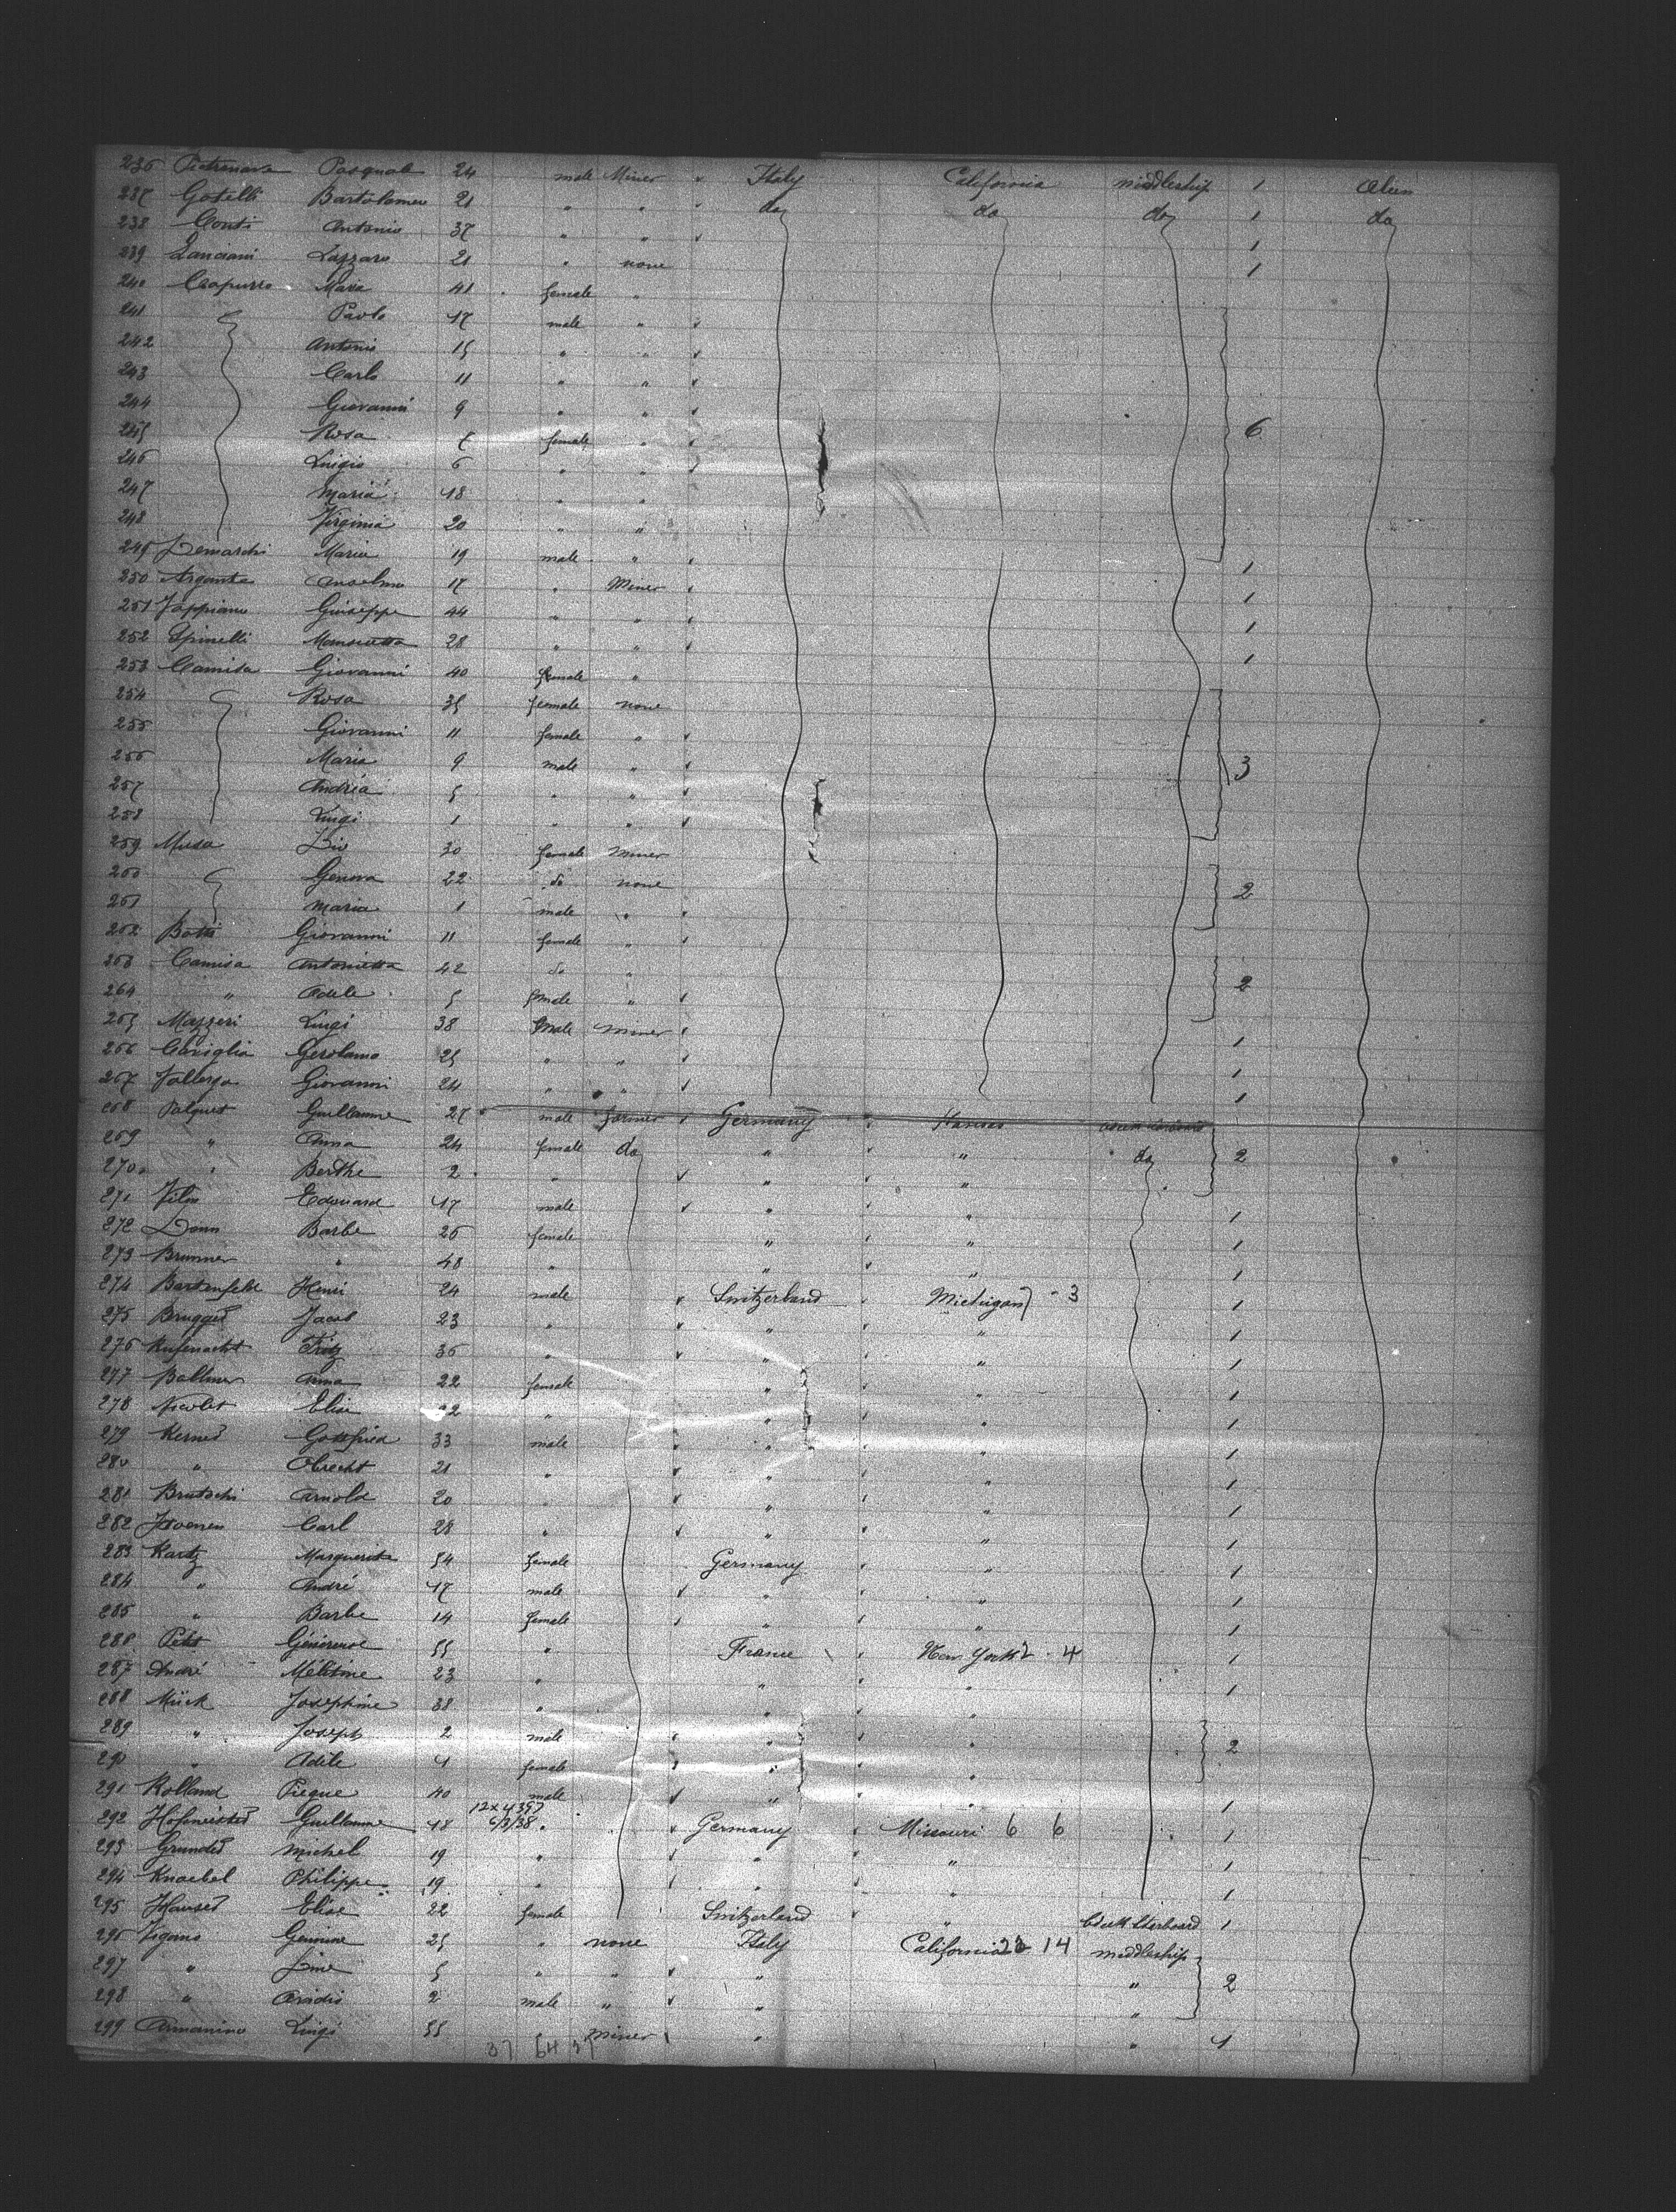 236 Pasquale 24 male Miner Italy California middleship 1 Alien
237 Gotelli Bartolomeo 21 " " " do do do 1 do
238 Conti Antonio 37 " " 1
239 Lanciani Lazzaro 21 " none 1
240 Capurro Maria 41 female "
241 Paolo 17 male "
242 Antonio 15 " "
243 Carlo 11 " "
244 Giovanni 9 " "
245 Rosa 7 female " 6
246 Luigia 6 " "
247 Maria 18 " "
248 Virginia 20 " "
249 Demarchi Maria 19 male " 1
250 Argante Anselmo 17 " Miner 1
251 Joppiano Giuseppe 44 " " 1
252 Spinelli 28 " " 1
253 Camisa Giovanni 40 "
254 Rosa 35 female none
255 Giovanni 11 female "
256 Maria 9 male " 3
257 Andria 5 " "
258 Luigi 1 " "
259 Musa 30 female Miner
260 Genova 22 do none 2
261 Maria 1 male "
262 Botti Giovanni 11 female "
263 Camisa Antonietta 42 do "
264 " Adele 5 " 2
265 Mazzeri Luigi 38 Male miner
266 Caviglia Gerolamo 25 " " 1
267 Vallerga Giovanni 24 " " 1
268 Guillaume 27 male farmer Germany Kansas 1
269 " Anna 24 female do " " do 2
270 " Berthe 2 " " "
271 Edouard 17 male " " 1
272 Barbe 26 female " " 1
273 Brunner " 48 " " " 1
274 Bartenfeld Henri 24 male Switzerland Michigan - 3 1
275 Jacob 23 " " " 1
276 Rufenacht Fritz 36 " " " 1
277 Bollmer Anna 22 female " " 1
278 Nicolet Elise 22 " " " 1
279 Kerner Gottfried 33 male " " 1
280 " Obrecht 21 " " " 1
281 Brutschi Arnold 20 " " " 1
282 Carl 28 " " " 1
283 Kartz Marguerite 54 female Germany " 1
284 " André 17 male " " 1
285 " Barbe 14 female " " 1
286 Petit Généreuse 55 " France New York 2 - 4 1
287 André Mélitine 23 " " " 1
288 Mück Josephine 38 " " "
289 " Joseph 2 male " " 2
290 " Adèle 4 female " "
291 Rolland 40 male " " 1
12x4397
292 Hofmeister Guillaume 48 6/2/38 " Germany Missouri 6 6 1
293 Grunder Michel 19 " " " 1
294 Knoebel Philippe 19 " " " 1
295 Hauser Elise 22 female Switzerland " 1
296 25 " none Italy California 14 middleship
297 " 5 " " " " 2
298 " 2 male " " "
299 Armanino Luigi 55 " miner " " 1
37 64